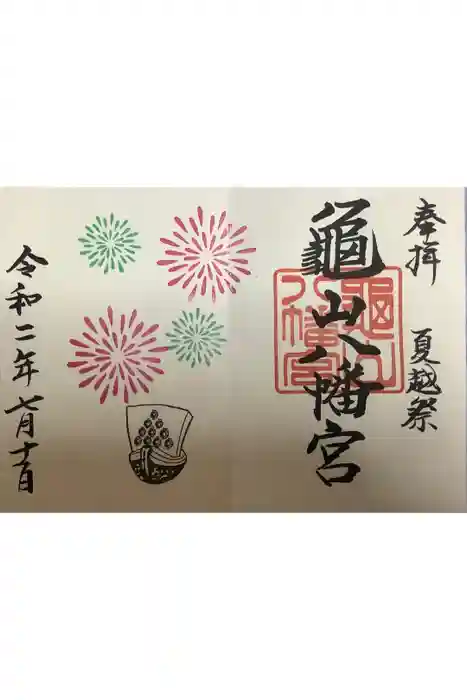 奉拝　夏越祭
龜山八幡宮
龜山八幡宮
令和二年七月十一日